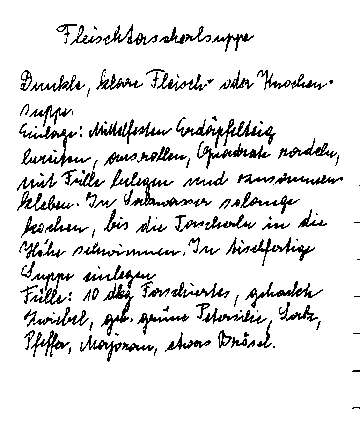 Fleischtascherlsuppe
Dunkle, klare Fleisch- oder Knochen-
suppe.
Einlage: Mittelfesten Erdäpfelteig
bereiten, ausrollen, Quadrate radeln,
mit Fülle belegen und zusammen-
kleben. In Salzwasser solange
kochen, bis die Tascherln in die
Höhe schwimmen. In tischfertige
Suppe einlegen
Fülle: 10 dkg Faschiertes, gehackte
Zwiebel, geh. grüne Petersilie, Salz,
Pfeffer, Majoran, etwas Brösel.